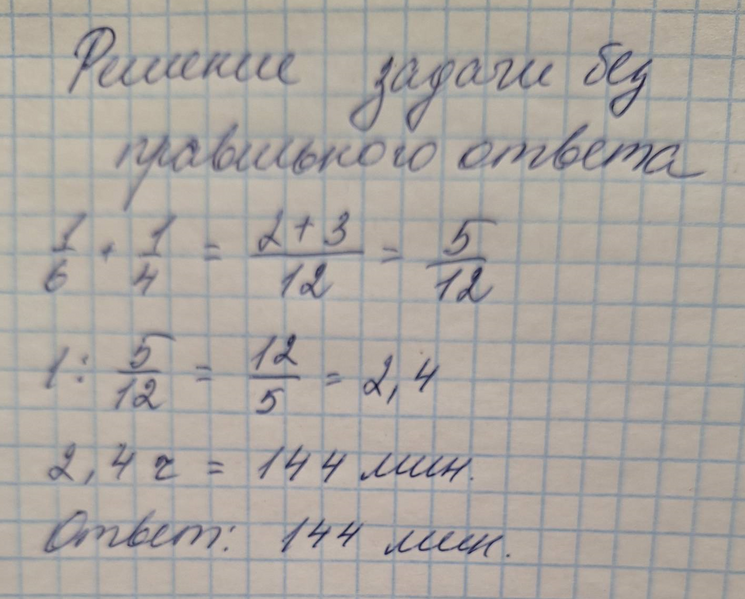 Решение задачи без
правильного ответа
1/6 + 1/4 = 2+3/12 = 5/12
1 : 5/12 = 12/5 = 2,4
2,4 ч = 144 мин.
Ответ: 144 мин.